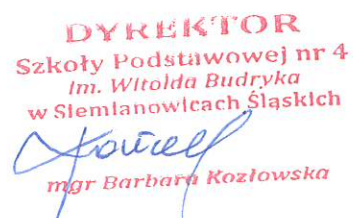 DYREKTOR
Szkoły Podstawowej nr 4
im. Witolda Budryka
w Siemianowicach Śląskich
mgr Barbara Kozłowska